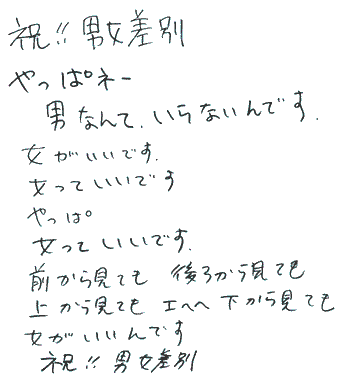 祝!! 男女差別
やっぱネー
男なんて、いらないんです.
女がいいです.
女っていいです
やっぱ
女っていいです.
前から見ても 後ろから見ても
上から見ても エへへ 下から見ても
女がいいんです
祝!! 男女差別